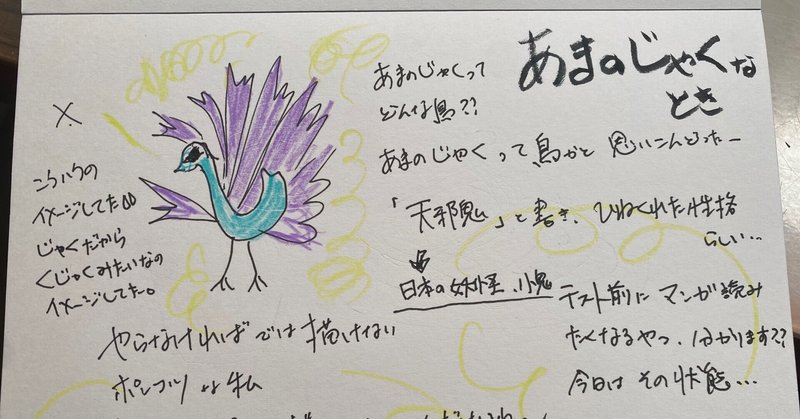 あまのじゃくな
とき
あまのじゃくって
どんな鳥??
あまのじゃくって鳥かと思いこんどったー
「天邪鬼」と書き、ひねくれた性格
らしい…
日本の妖怪、小鬼
テスト前にマンガ読み
たくなるやつ、分かります??
今日はその状態…
こういうの
イメージしてた
じゃくだから
くじゃくみたいなの
イメージしてた。
やらなければでは描けない
ポンコツな私